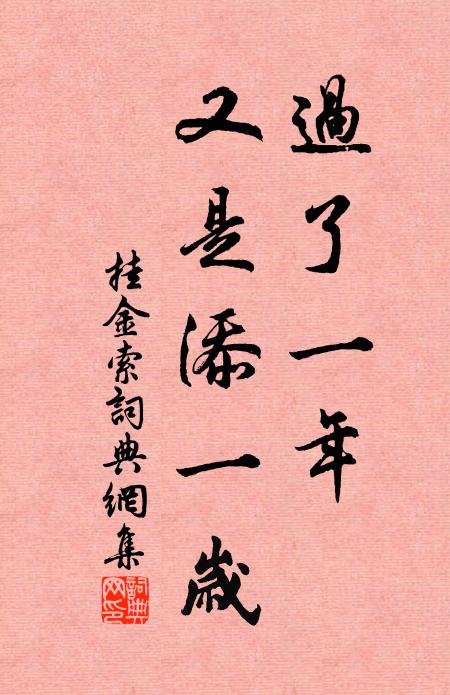 過了一年
又是添一歲
挂金索詞典網集
詞典網印